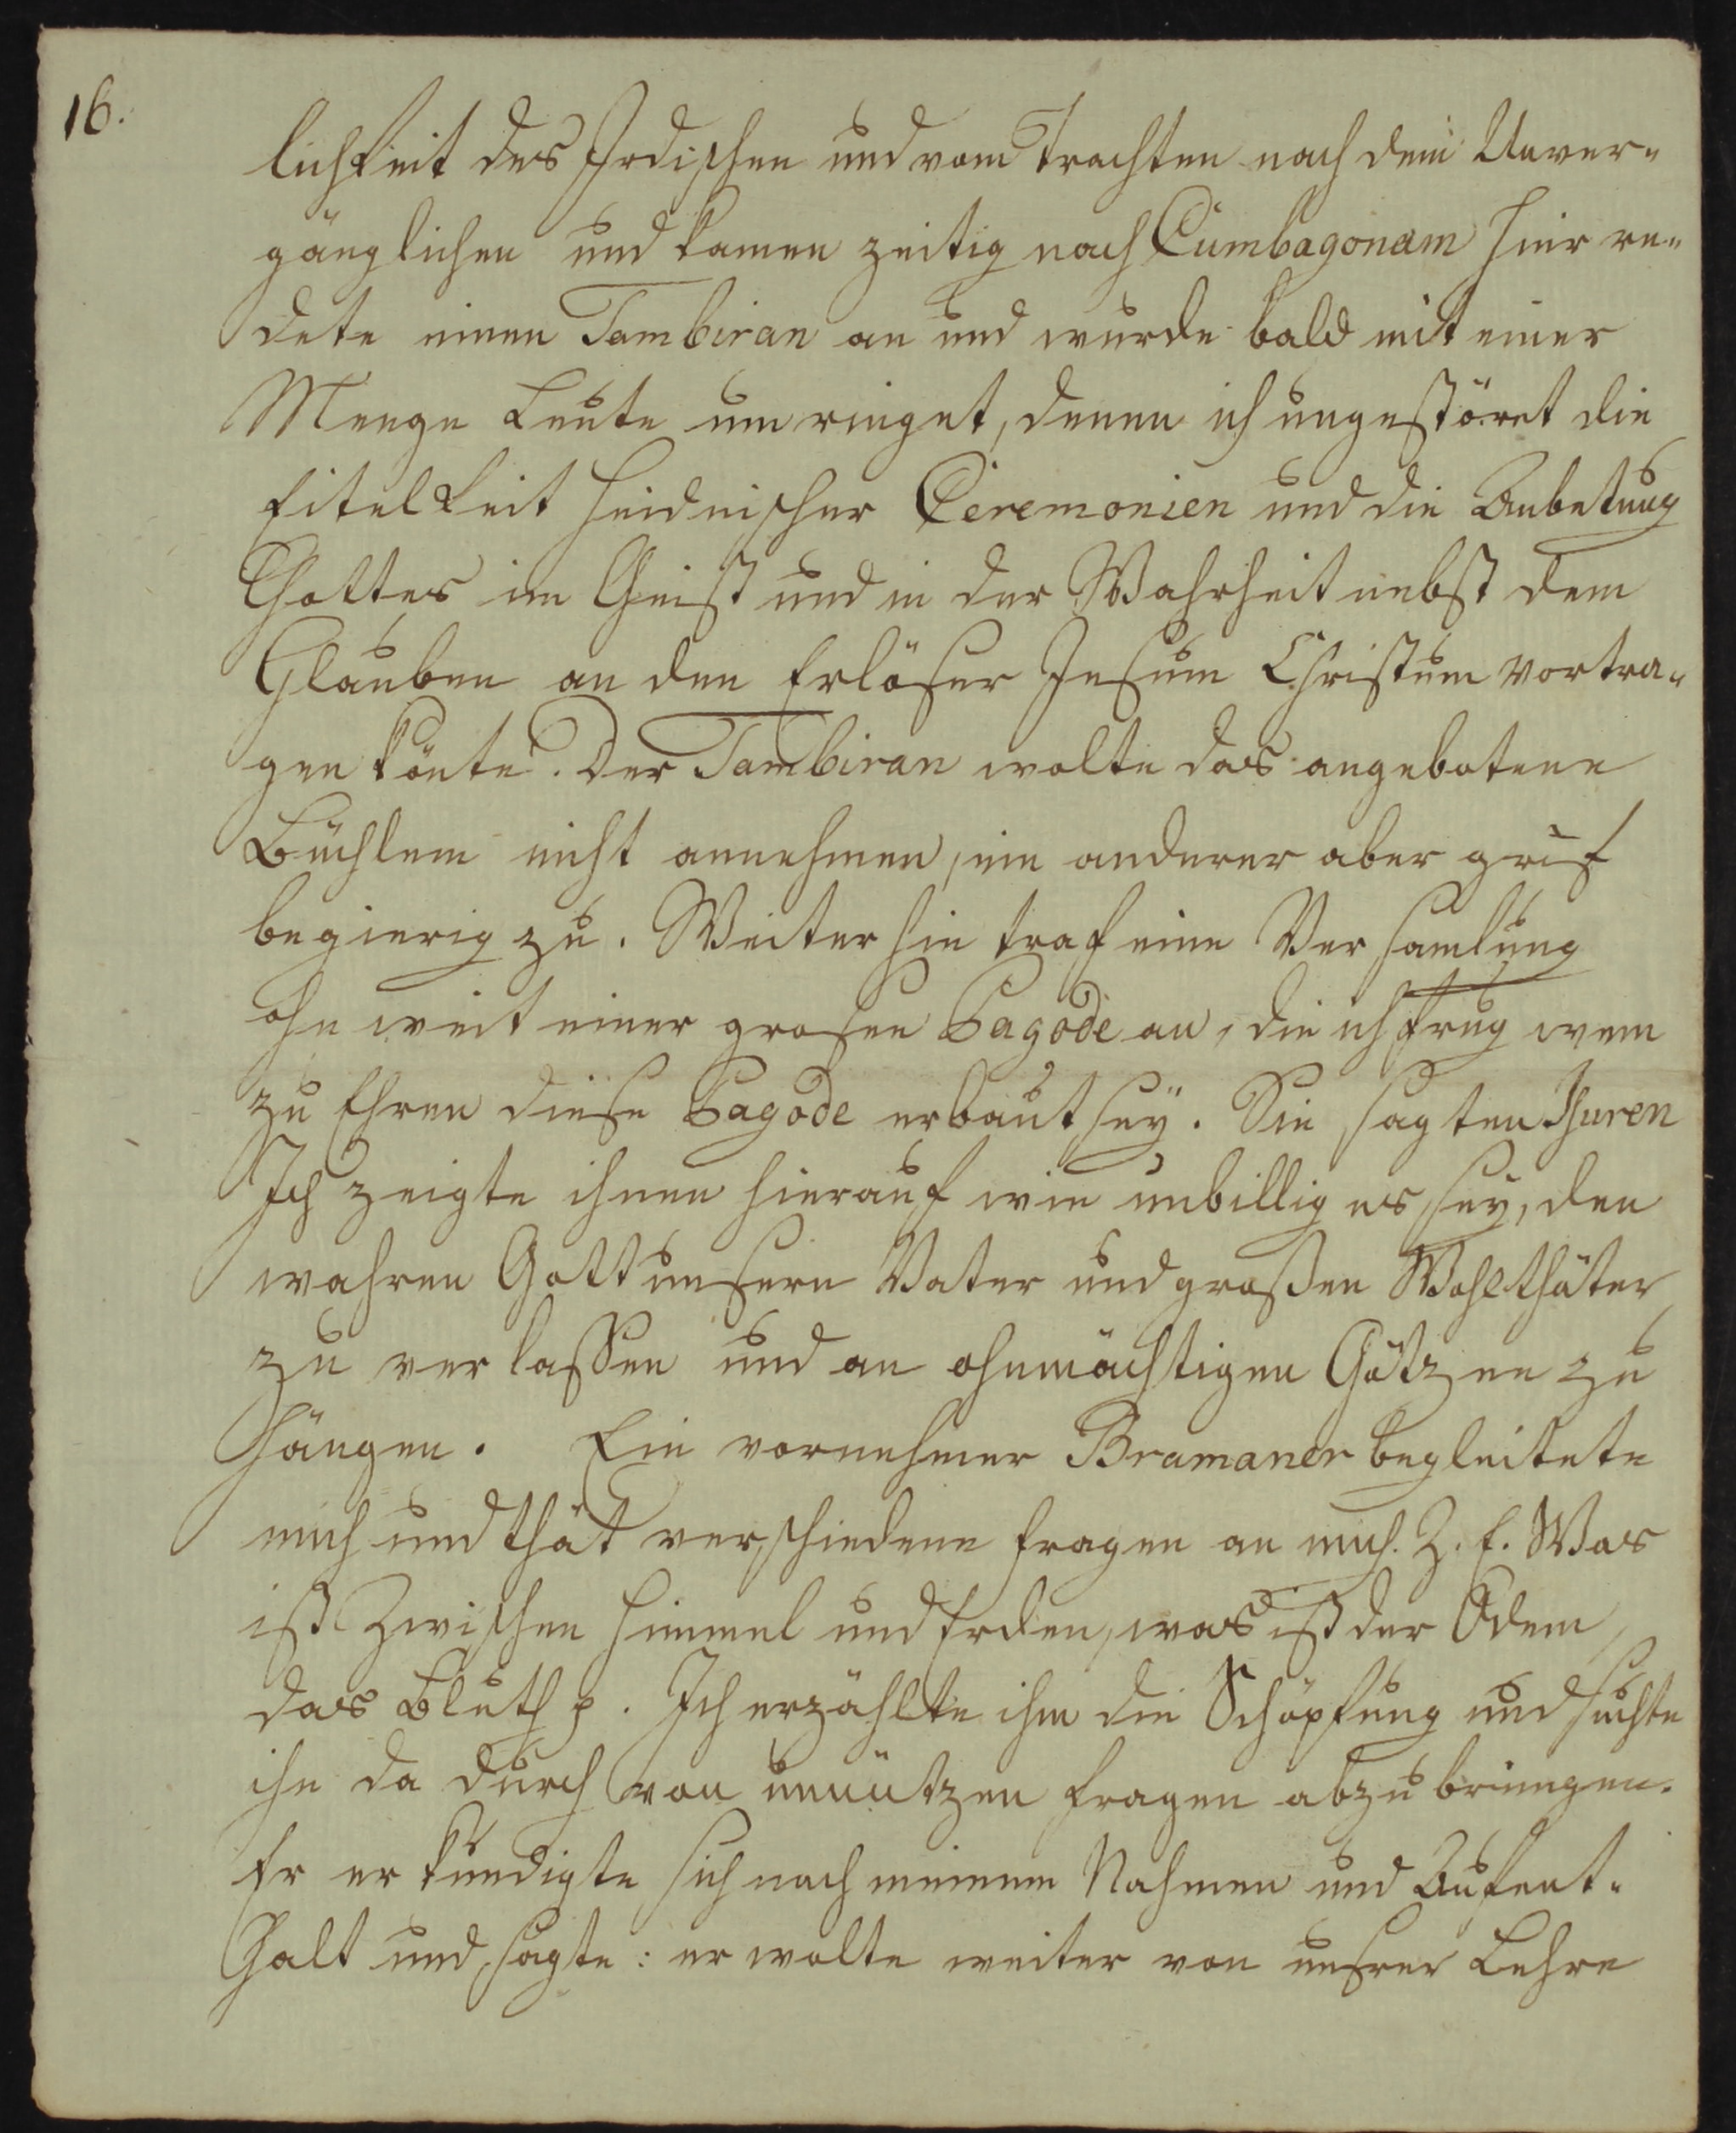 16.
lichkeit des Irdischen und vom Trachten nach dem Unver-
gänglichen und kamen zeitig nach Cumbagonam hier re-
dete einen Tambiran an und wurde bald mit einer
Menge Leute umringet, denen ich ungestöret die
Eitelkeit heidnischer Ceremonien und die Anbetung
Gottes im Geist und in der Wahrheit nebst dem
Glauben an den Erlöser Jesum Christum vortra-
gen könte. Der Tambiran wolte das angebotene
Büchlein nicht annehmen, ein anderer aber grif
begierig zu. Weiter hin traf eine Versamlung
ohn weit einer grosen Pagode an, die ich frug wem
zu Ehren diese Pagode erbaut seÿ. Sie sagten Isuren
Ich zeigte ihnen hierauf wie unbillig es seÿ, den
wahren Gott unsern Vater und großen Wohlthäter
zu verlassen und an ohnmächtigen Götzen zu
hängen. Ein vornehmer Bramaner begleitete
mich und that verschiedene Fragen an mich. Z. E. Was
ist zwischen Himmel und Erden, was ist der Odem,
das Bluth p. Ich erzählte ihm die Schöpfung und suchte
ihn da durch von unnützen Fragen abzubringen.
Er erkundigte sich nach meinem Nahmen und Aufent-
halt und sagte: er wolte weiter von unsrer Lehre